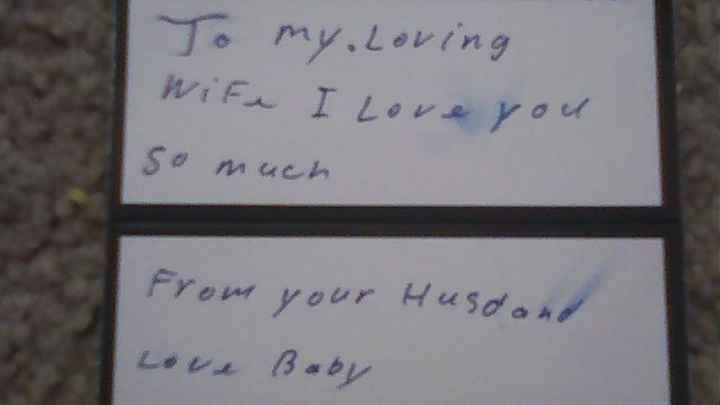 To my.Loving
WiFe I Love you
So much
From your Husdand
Love Baby